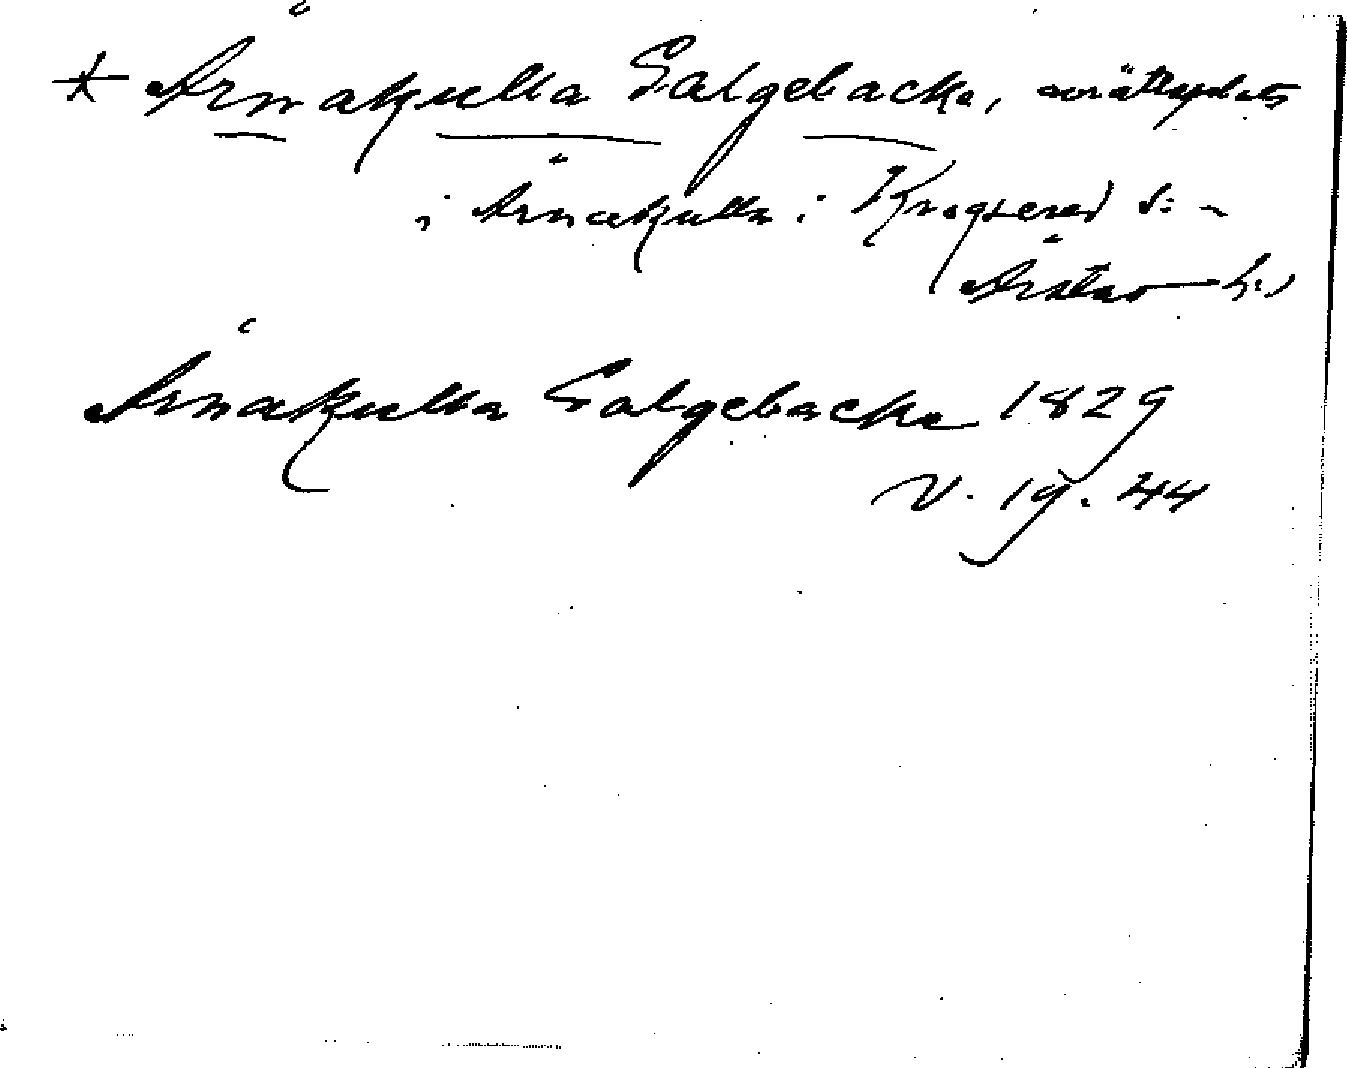 * Årnakulla Galgebacke, avrättsplats
i Årnakulla i Krogsered s:n
Årstad hd
Årnakulla Galgebacke 1829
V. 19. 44